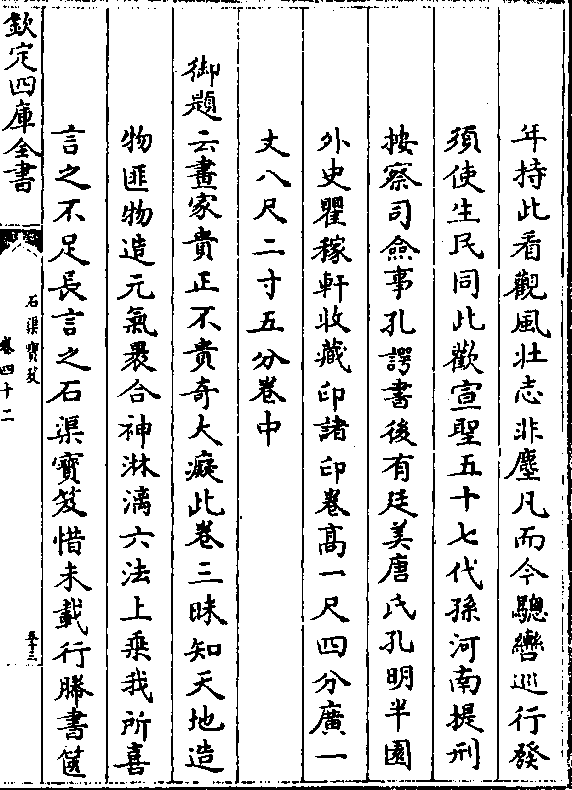 年持此看觀風壯志非塵凡而今驄轡巡行發
須使生民同此歡宣聖五十七代孫河南提刑
按察司僉事孔諤書後有廷美唐氏孔明半園
外史瞿稼軒收藏印諸印卷高一尺四分廣一
丈八尺二寸五分卷中
御題云畫家貴正不貴奇大癡此卷三昧知天地造
物匪物造元氣褁合神淋漓六法上乘我所喜
言之不足長言之石渠寳笈惜未載行幐書篋
欽定四庫全書
石渠寳笈
卷四十二